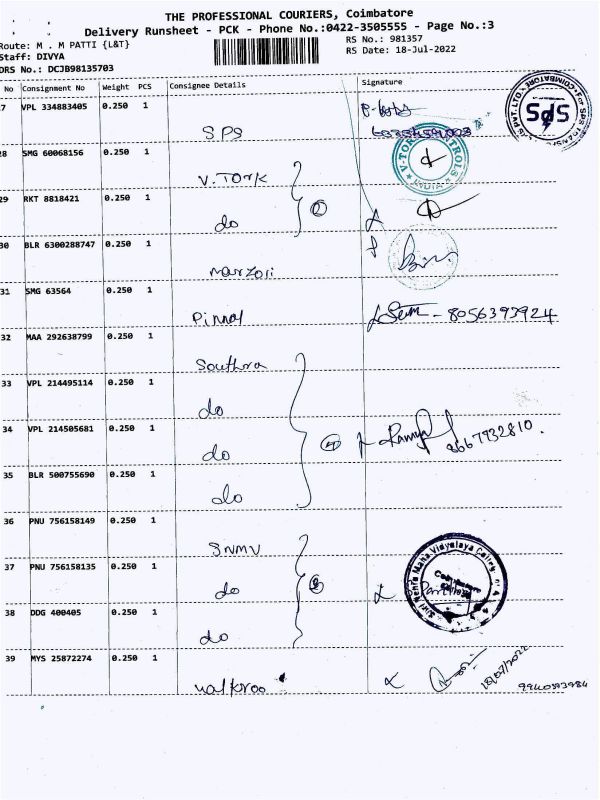 THE PROFESSIONAL COURIERS, Coimbatore
Delivery Runsheet - PCK - Phone No.:0422-3505555 - Page No.:3
Route: M . M PATTI {L&T}
RS No.: 981357
Staff: DIVYA
RS Date: 18-Jul-2022
DRS No.: DCJB98135703
No Consignment No Weight PCS Consignee Details Signature
7 VPL 334883405 0.250 1
SPS
SPS
28 SMG 60068156 0.250 1
V.TORK
V-TORK
INDIA
29 RKT 8818421 0.250 1
do
30 BLR 6300288747 0.250 1
Marzoli
31 SMG 63564 0.250 1
Pinnal
8056393924
32 MAA 292638799 0.250 1
Southra
33 VPL 214495114 0.250 1
do
34 VPL 214505681 0.250 1
do
8667932810.
35 BLR 500755690 0.250 1
do
36 PNU 756158149 0.250 1
SNMV
37 PNU 756158135 0.250 1
do
38 DDG 400405 0.250 1
do
39 MYS 25872274 0.250 1
walkroo
18/07/2022
9940393984